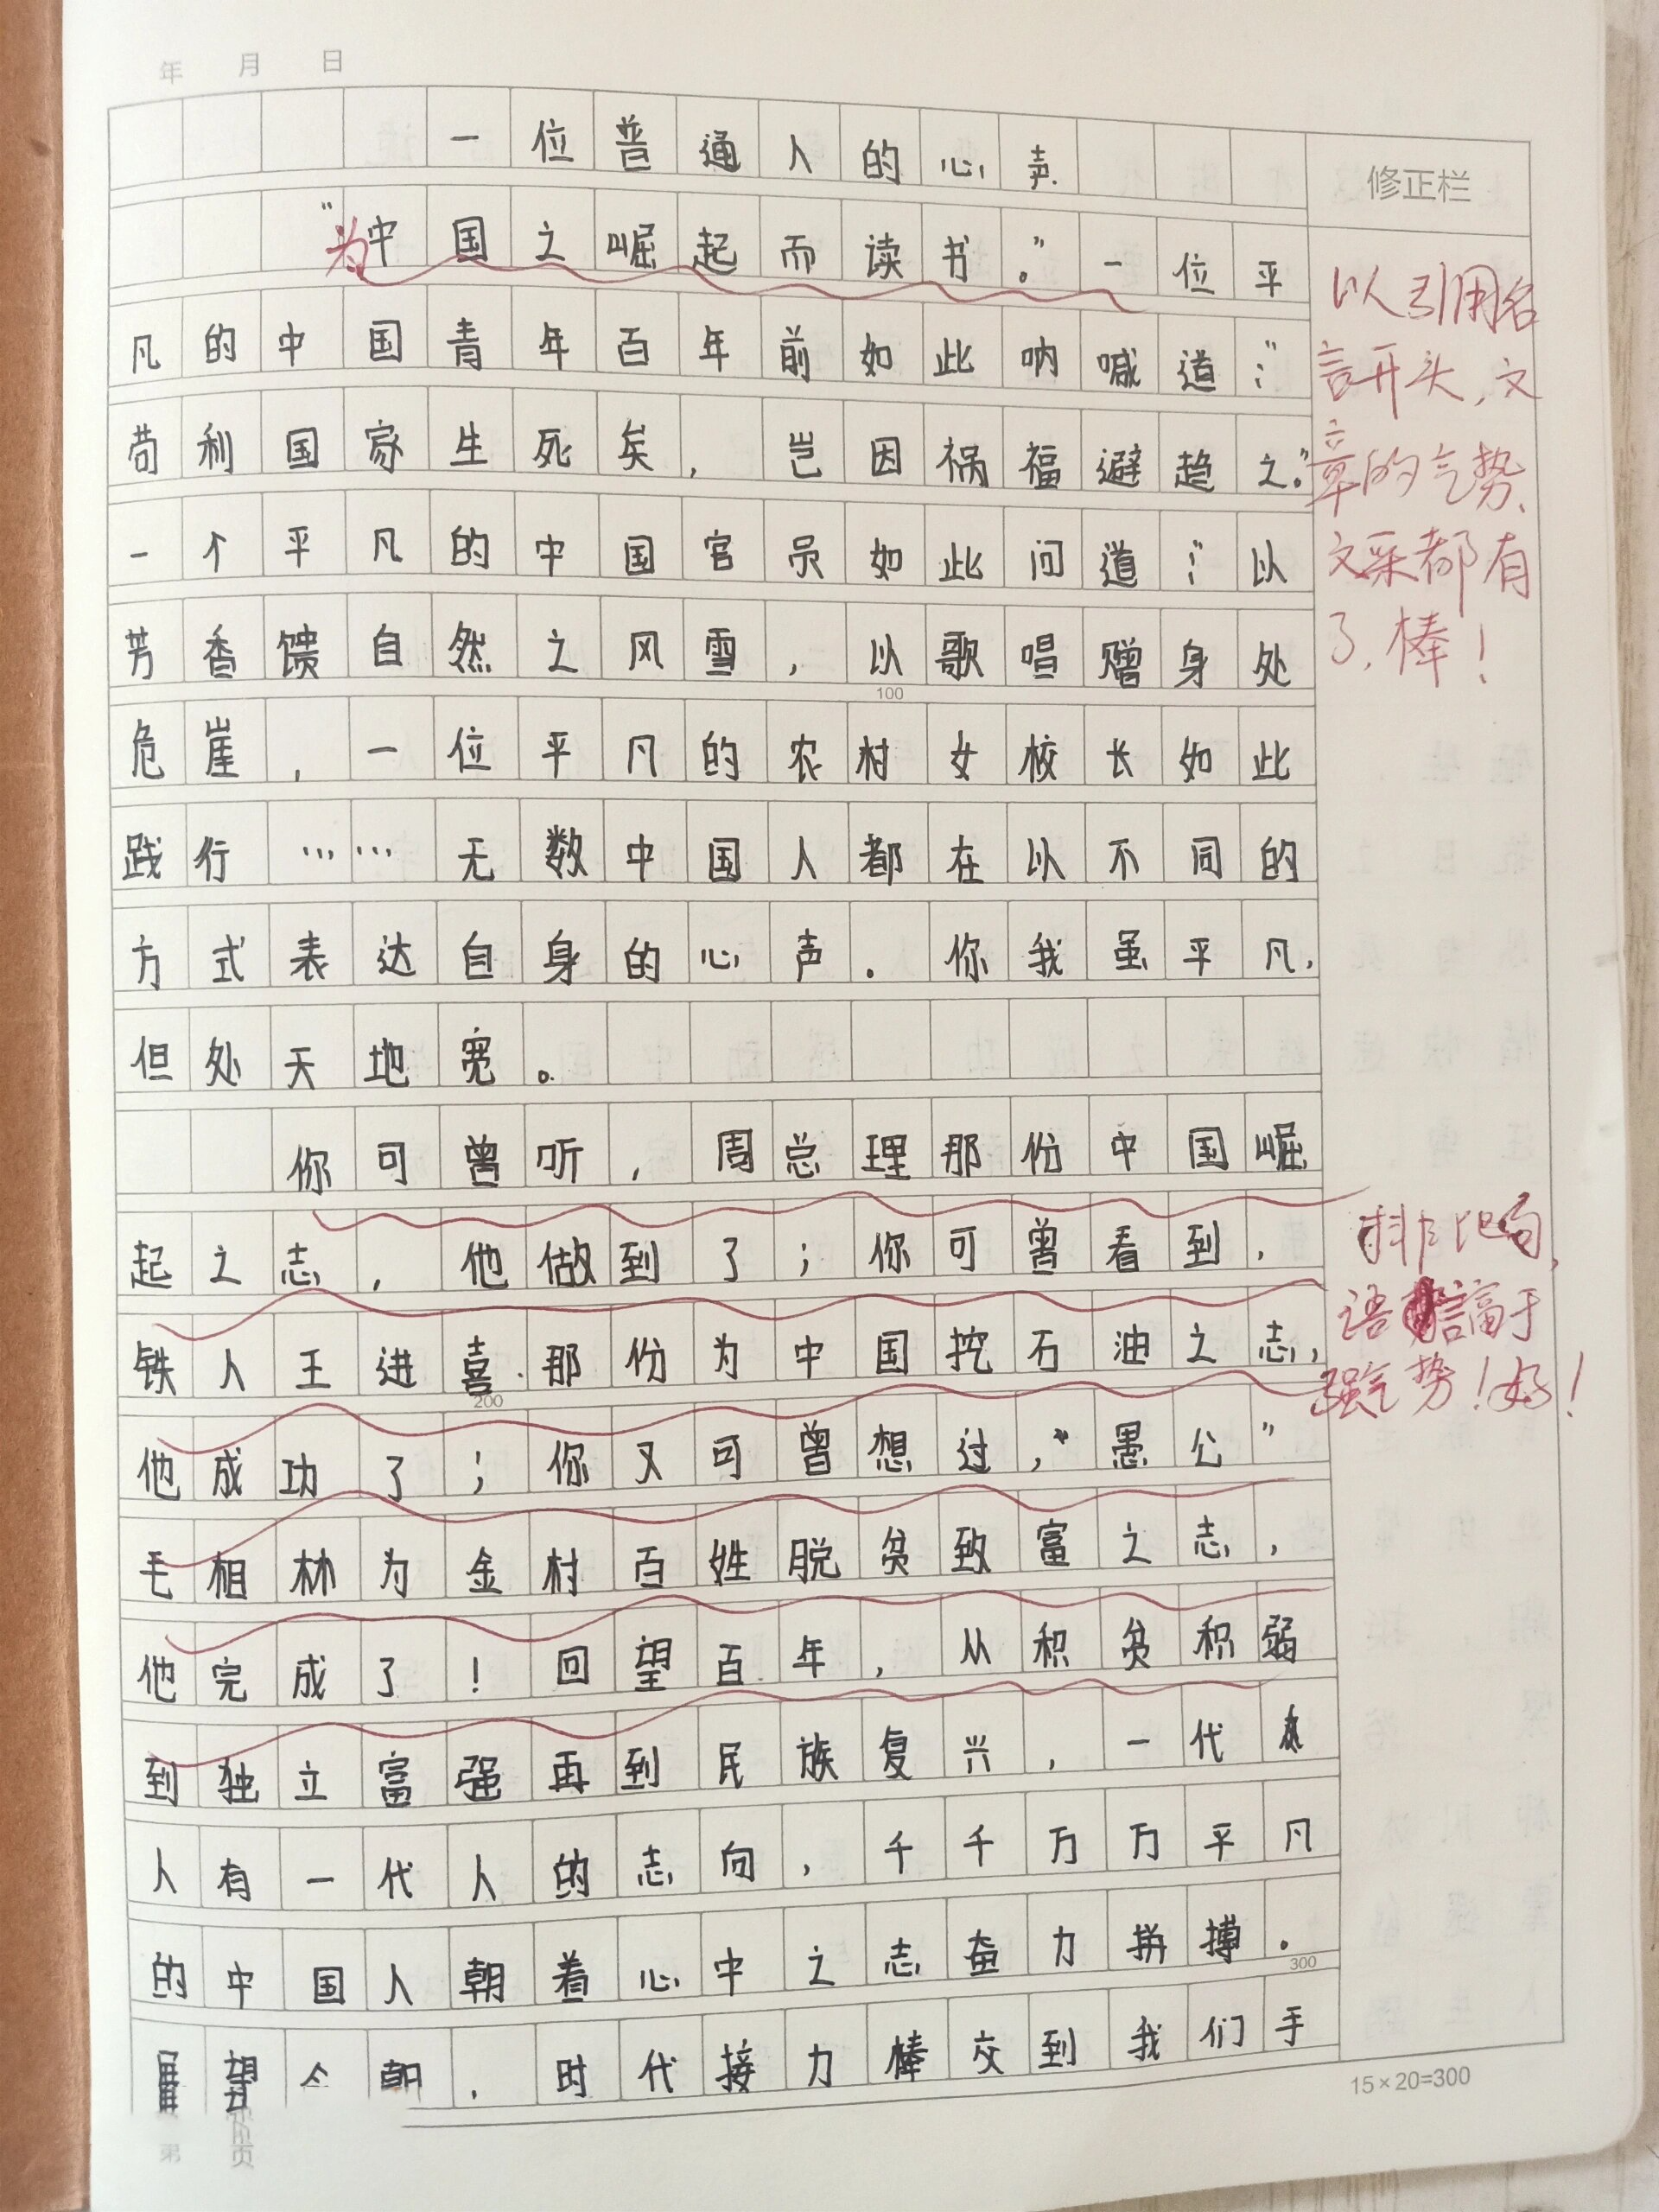 年 月 日
一位普通人的心声
修正栏
"为中国之崛起而读书。"一位平
凡的中国青年百年前如此呐喊道:"
苟利国家生死矣,岂因祸福避趋之。"
一个平凡的中国官员如此问道:"以
芳香馈自然之风雪,以歌唱赠身处
100
危崖,一位平凡的农村女校长如此
践行……无数中国人都在以不同的
方式表达自身的心声.你我虽平凡,
但处天地宽。
你可曾听,周总理那份中国崛
起之志,他做到了;你可曾看到,
铁人王进喜那份为中国挖石油之志,
200
他成功了;你又可曾想过,"愚公"
毛相林为金村百姓脱贫致富之志,
他完成了!回望百年,从积贫积弱
到独立富强再到民族复兴,一代
人有一代人的志向,千千万万平凡
的中国人朝着心中之志奋力拼搏.
300
展望今朝,时代接力棒交到我们手
15×20=300
第 页
以引用名
言开头,文
章的气势、
文采都有
了,棒!
排比句,
语言富于
强气势!好!